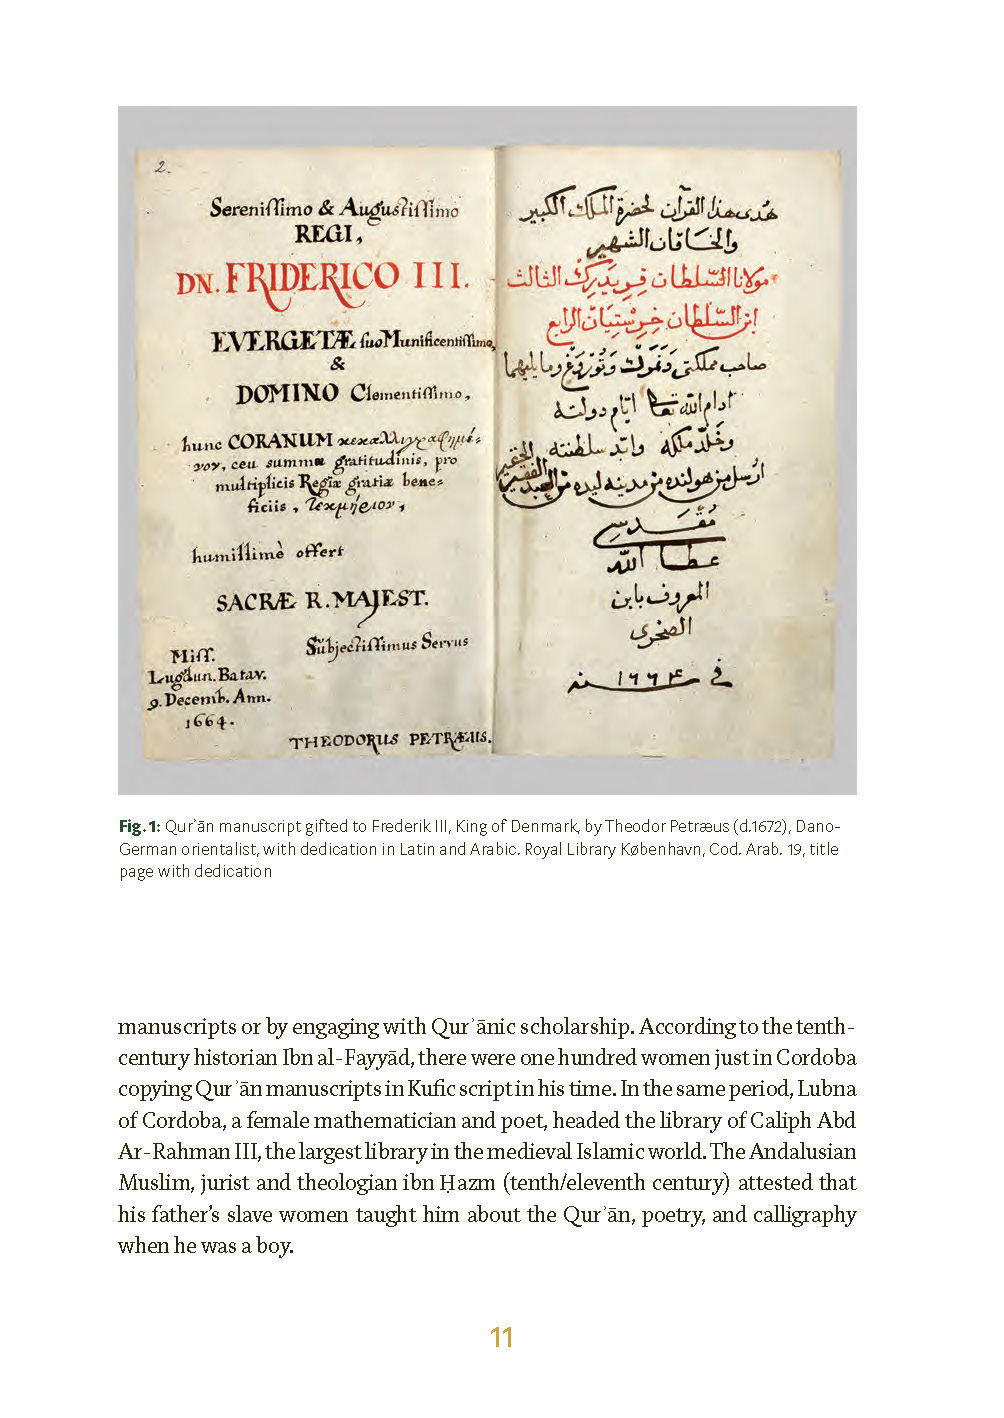 2.
Sereniſſimo & Auguſtiſſimo
REGI,
DN. FRIDERICO III.
EVERGETÆ ſuo Munificentiſſimo,
&
DOMINO Clementiſſimo,
hunc CORANUM κεκαλλιγραφημέ-
νον, ceu summæ gratitudinis, pro
multiplicis Regiæ gratiæ bene-
ficiis, τεκμήριον,
humillimè offert
SACRÆ R. MAJEST.
Subjectiſſimus Servus
Miſſ.
Lugdun. Batav.
9. Decemb. Ann.
1664.
THEODORUS PETRÆUS.
هدى هذا القرآن لحضرة الملك الكبير
والخاقان الشهير
مولانا السّلطان فريدرك الثالث
ابن السّلطان خرستيان الرابع
صاحب مملكتى دنمرك ونورڤغ وما يليهما
ادام الله تعالى ايّام دولته
وخلّد ملكه وابّد سلطنته
ارسل من هولنده من مدينه ليده من العبد الفقير الحقير
مقدسي
عطا الله
المعروف بابن
الصخرى
في سنه ١٦٦٤
Fig.1: Qurʾān manuscript gifted to Frederik III, King of Denmark, by Theodor Petræus (d.1672), Dano-
German orientalist, with dedication in Latin and Arabic. Royal Library København, Cod. Arab. 19, title
page with dedication
manuscripts or by engaging with Qurʾānic scholarship. According to the tenth-
century historian Ibn al-Fayyād, there were one hundred women just in Cordoba
copying Qurʾān manuscripts in Kufic script in his time. In the same period, Lubna
of Cordoba, a female mathematician and poet, headed the library of Caliph Abd
Ar-Rahman III, the largest library in the medieval Islamic world. The Andalusian
Muslim, jurist and theologian ibn Ḥazm (tenth/eleventh century) attested that
his father’s slave women taught him about the Qurʾān, poetry, and calligraphy
when he was a boy.
11